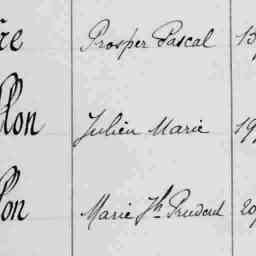 re Prosper Pascal 13
llon Julien Marie 19
lon Marie Jh Prudent 20